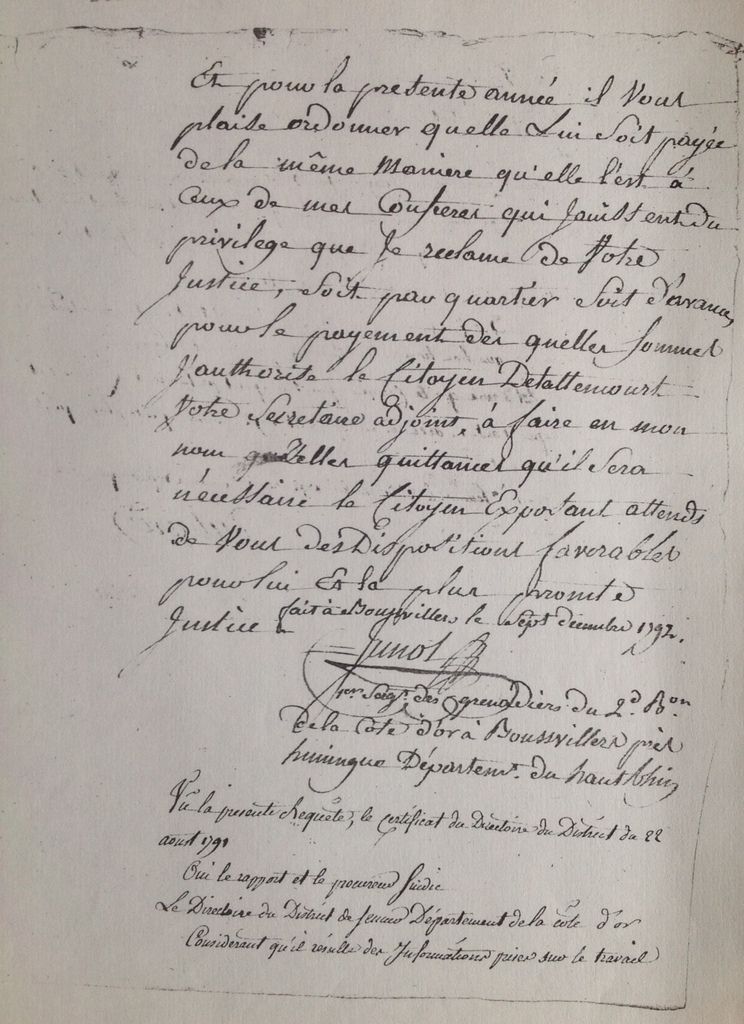 Et pour la presente année il Vous
plaise ordonner quelle Lui soit payée
de la même Maniere qu'elle l'est à
Ceux de mes Confreres qui Jouissent du
privilege que Je reclame de Votre
Justice, soit par quartier soit d'avance,
pour le payement des quelles sommes
J'authorise le Citoyen Detattemourt
Votre Secretaire adjoint, à faire en mon
nom telles quittances qu'il Sera
nécessaire le Citoyen Exposant attends
de Vous des Dispositions favorables
pour lui Et la plus promte
Justice fait à Bousvillers le Sept decembre 1792.
Junot
1er Sergt. des grenadiers du 2d. Bon
de la Cote d'or à Boussvillers près
huningue Départemt. du haut Rhin
Vu la presente Requête, le certificat du Directoire du District du 22
aoust 1791
Oui le rapport et le procureur Sindic
Le Directoire du District de semur Département de la cote d'or
Considerant qu'il résulte des Informations prises sur le travail